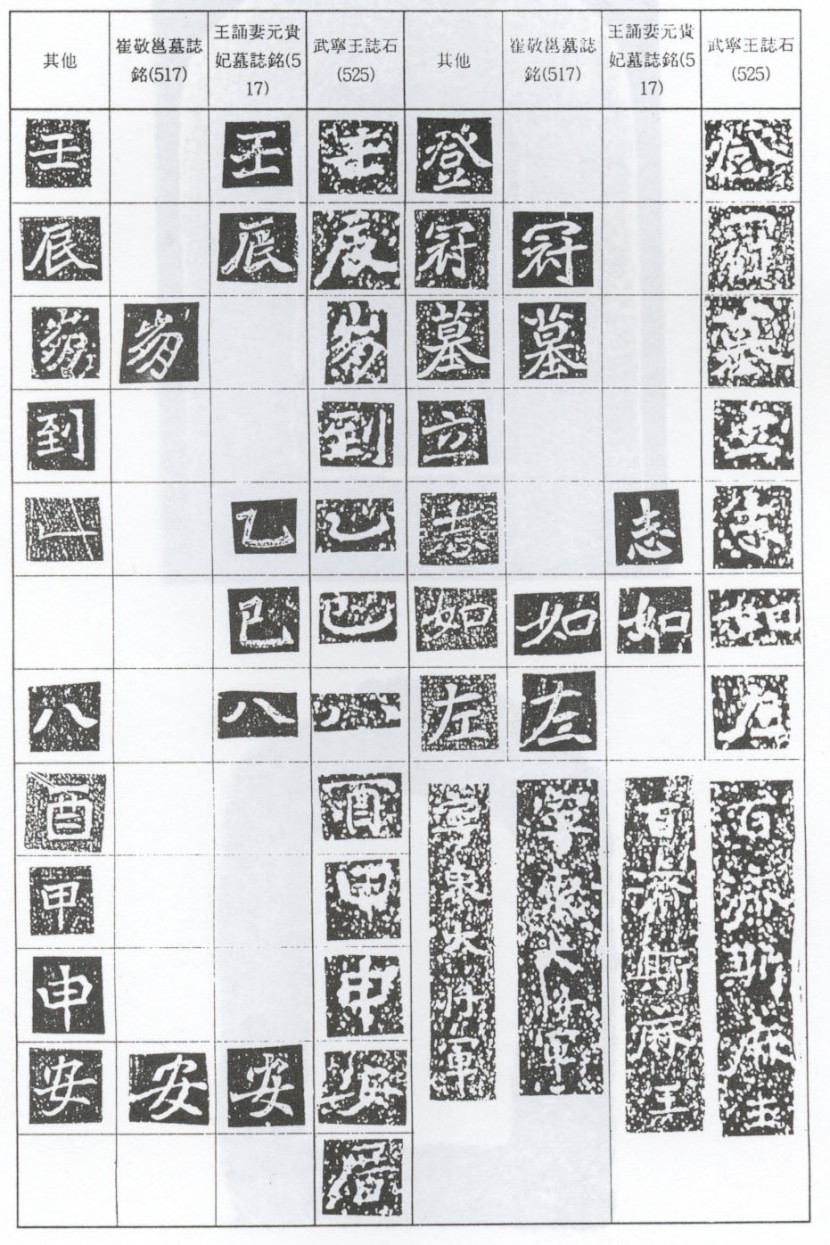 其他 崔敬邕墓誌銘(517) 王誦妻元貴妃墓誌銘(517) 武寧王誌石(525) 其他 崔敬邕墓誌銘(517) 王誦妻元貴妃墓誌銘(517) 武寧王誌石(525)
壬 壬 壬 登 登
辰 辰 辰 冠 冠 冠
墓 墓 墓
到 到 立
乙 乙 志 志 志
已 已 如 如 如 如
八 八 八 左 左 左
酉 酉
甲 甲
申 申
安 安 安 安
寧東大將軍
寧東大將軍
百濟斯麻王
百濟斯麻王